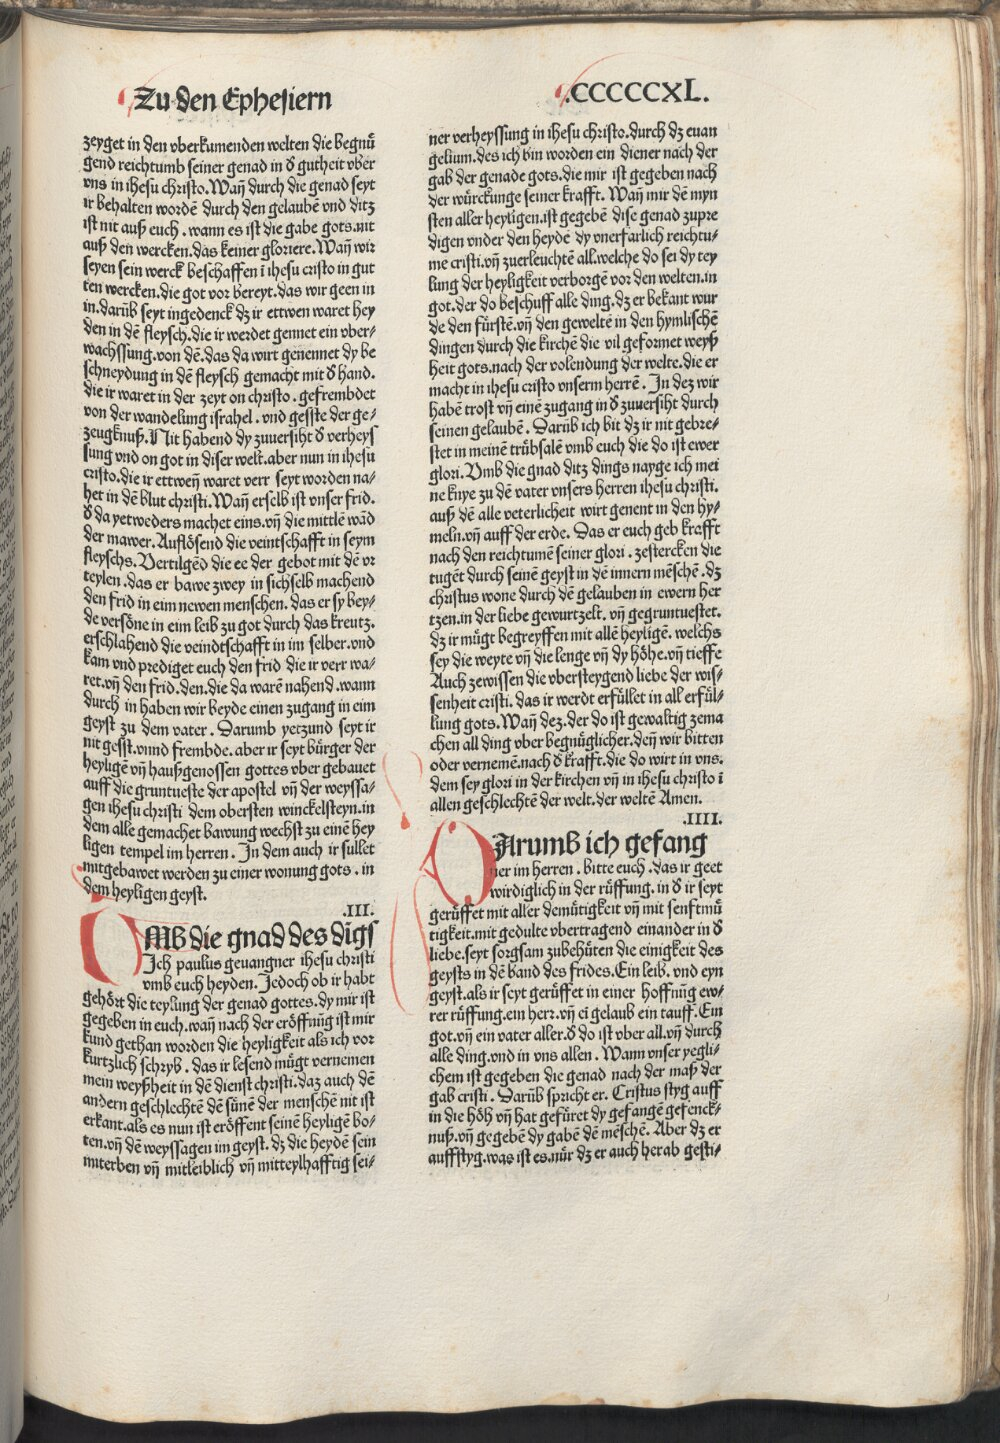 Zu den Ephesiern
.CCCCCXL.
zeyget in den vberkumenden welten die begnuͤ
gend reichtumb seiner genad in d̕ gutheit vber
vns in ihesu christo. Wañ durch die genad seyt
ir behalten wordē durch den gelaubē vnd ditz
ist nit auß euch . wann es ist die gabe gots. nit
auß den wercken. das keiner gloriere. Wañ wir
seyen sein werck beschaffen ī ihesu cristo in gut
ten wercken. die got vor bereyt. das wir geen in
in. darūb seyt ingedenck dz ir ettwen waret hey
den in dē fleysch. die ir werdet gennet ein vber⸗
wachssung. von dē. das da wirt genennet dy be
schneydung in dē fleysch gemacht mit d̕ hand.
die ir waret in der zeyt on christo . gefrembdet
von der wandelung israhel . vnd gesste der ge⸗
zeugknuß. Nit habend dy zuuersiht d̕ verheys
sung vnd on got in diser welt. aber nun in ihesu
cristo. die ir ettweñ waret verr seyt worden na⸗
het in dē blut christi. Wañ erselb ist vnser frid.
d̕ da yetweders machet eins. vñ die mittlē wād
der mawer. Auflösend die veintschafft in seym
fleyschs. Vertilgēd die ee der gebot mit dē vr
teylen . das er bawe zwey in sichselb machend
den frid in eim newen menschen. das er sy bey⸗
de versöne in eim leib zu got durch das kreutz.
erschlahend die veindtschafft in im selber. vnd
kam vnd prediget euch den frid die ir verr wa⸗
ret. vñ den frid. den. die da warē nahend . wann
durch in haben wir beyde einen zugang in eim
geyst zu dem vater . Darumb yetzund seyt ir
nit gesst. vnnd frembde. aber ir seyt buͤrger der
heyligē vñ haußgenossen gottes vber gebauet
auff die gruntueste der apostel vñ der weyssa⸗
gen ihesu christi dem obersten winckelsteyn. in
dem alle gemachet bawung wechst zu einē hey
ligen tempel im herren . In dem auch ir sullet
mitgebawet werden zu einer wonung gots . in
dem heyligen geyst.
.III.
UMb die gnad des dīgs
Ich paulus geuangner ihesu christi
vmb euch heyden. Jedoch ob ir habt
gehört die teylung der genad gottes. dy mir ist
gegeben in euch. wañ nach der eröffnūg ist mir
kund gethan worden die heyligkeit als ich vor
kurtzlich schryb . das ir lesend muͤgt vernemen
mein weyßheit in dē dienst christi. daz auch dē
andern geschlechtē dē suͤnē der menschē nit ist
erkant. als es nun ist eröffent seinē heyligē bo⸗
ten. vñ dē weyssagen im geyst. dz die heydē sein
miterben vñ mitleiblich vñ mitteylhafftig sei⸗
ner verheyssung in ihesu christo. durch dz euan
gelium. des ich bin worden ein diener nach der
gab der genade gots. die mir ist gegeben nach
der wuͤrckunge seiner krafft. Wañ mir dē myn
sten aller heyligen. ist gegebē dise genad zupre
digen vnder den heydē dy vnerfarlich reichtu⸗
me cristi. vñ zuerleuchtē all. welche do sei dy tey
lung der heyligkeit verborgē vor den welten. in
got. der do beschuff alle ding. dz er bekant wur
de den fuͤrstē. vñ den geweltē in den hymlischē
dingen durch die kirchē die vil geformet weyß
heit gots. nach der volendung der welte. die er
macht in ihesu cristo vnserm herrē . In dez wir
habē trost vñ einē zugang in d̕ zuuersiht durch
seinen gelaubē . Darūb ich bit dz ir nit gebre⸗
stet in meinē truͤbsalē vmb euch die do ist ewer
glori. Vmb die gnad ditz dings nayge ich mei
ne knye zu dē vater vnsers herren ihesu christi.
auß dē alle veterlicheit wirt genent in den hy⸗
meln. vñ auff der erde. Das er euch geb krafft
nach den reichtumē seiner glori . zestercken die
tugēt durch seinē geyst in dē innern mēschē . dz
christus wone durch dē gelauben in ewern her
tzen. in der liebe gewurtzelt. vñ gegruntuestet.
dz ir muͤgt begreyffen mit allē heyligē. welchs
sey die weyte vñ die lenge vñ dy höhe. vñ tieffe
Auch zewissen die vbersteygend liebe der wis⸗
senheit cristi. das ir werdt erfuͤllet in all erfuͤl⸗
lung gots. Wañ dez. der do ist gewaltig zema
chen all ding vber begnuͤglicher. deñ wir bitten
oder vernemē. nach d̕ krafft. die do wirt in vns.
dem sey glori in der kirchen vñ in ihesu christo ī
allen geschlechtē der welt. der weltē Amen.
.IIII.
DArumb ich gefang
ner im herren . bitte euch . das ir geet
wirdiglich in der ruͤffung. in d̕ ir seyt
geruͤffet mit aller demuͤtigkeit vñ mit senftmuͤ
tigkeit. mit gedulte vbertragend einander in d̕
liebe. seyt sorgsam zubehuͤten die einigkeit des
geysts in dē band des frides. Ein leib. vnd eyn
geyst. als ir seyt geruͤffet in einer hoffnūg ew⸗
rer ruͤffung. ein herr. vñ eī gelaub ein tauff. Ein
got. vñ ein vater aller. d̕ do ist vber all. vñ durch
alle ding. vnd in vns allen . Wann vnser yegli⸗
chem ist gegeben die genad nach der maß der
gab cristi . Darūb spricht er. Cristus styg auff
in die höh vñ hat gefuͤret dy gefangē gefenck⸗
nuß. vñ gegebē dy gabē dē mēschē. Aber dz er
auffstyg. was ist es. nuͤr dz er auch herab gesti⸗